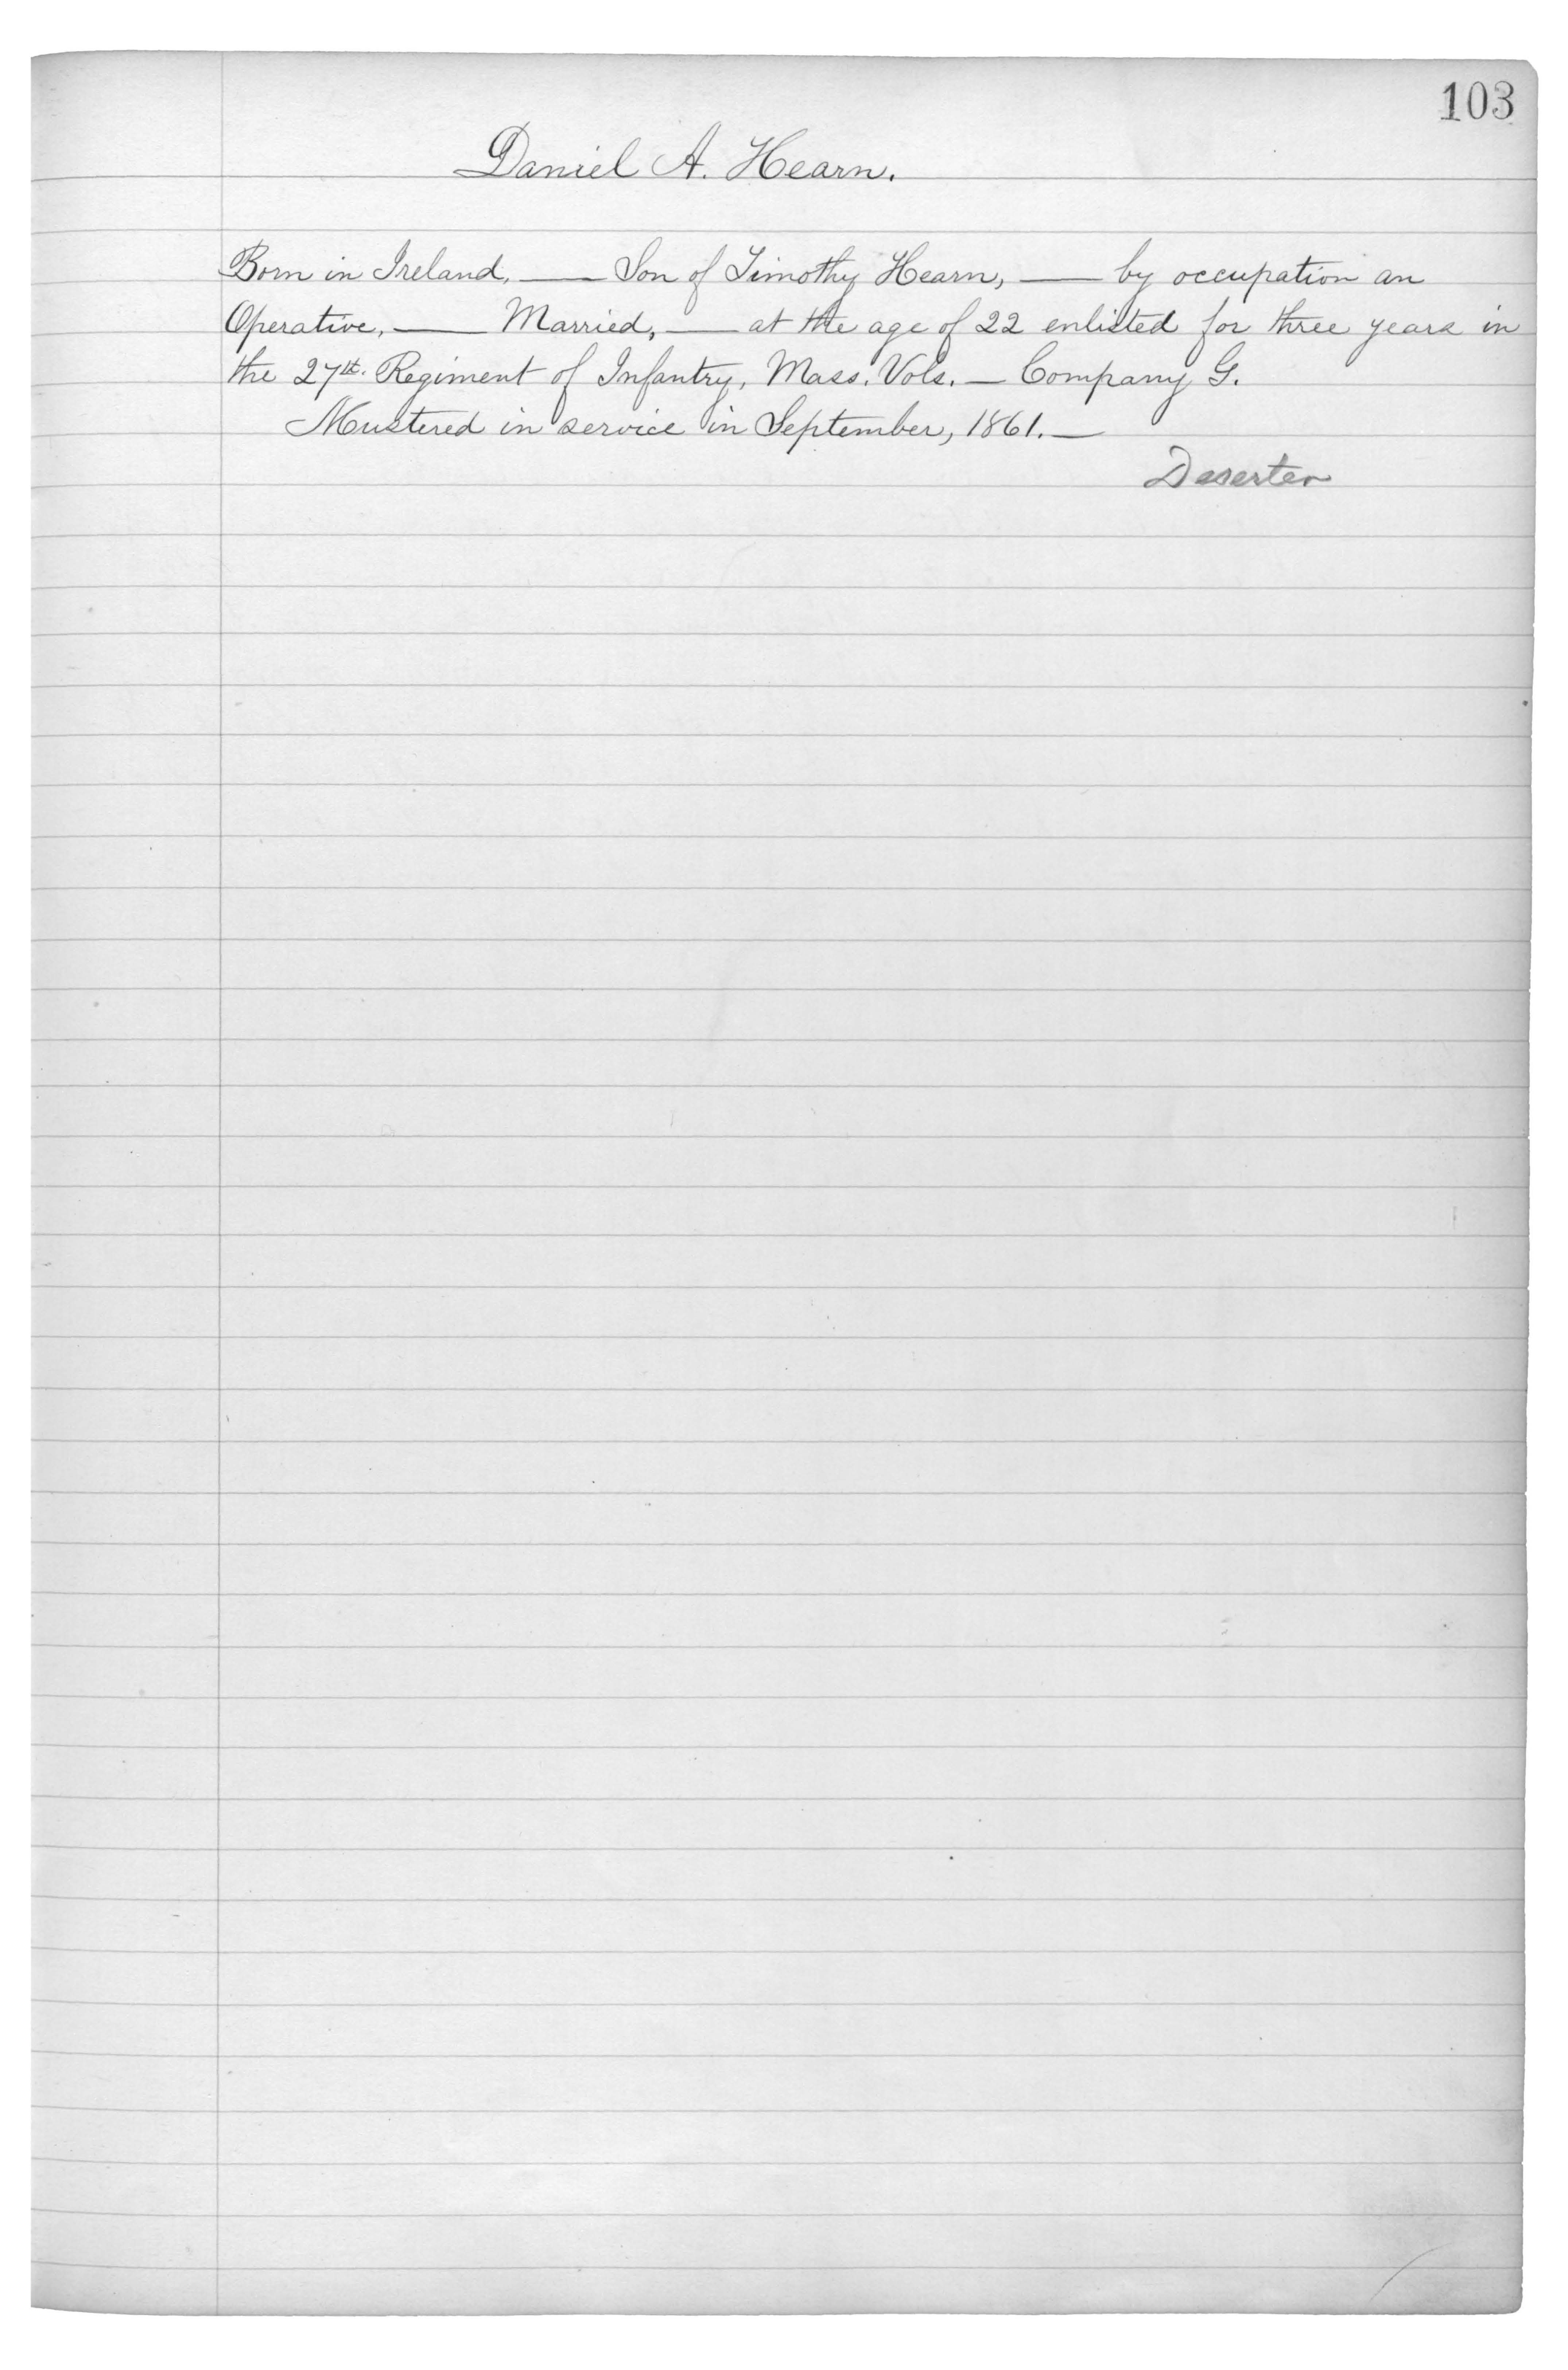 103
Daniel A. Hearn.
Born in Ireland, — Son of Timothy Hearn, — by occupation an
Operative, — Married, — at the age of 22 enlisted for three years in
the 27th. Regiment of Infantry, Mass. Vols. — Company G.
Mustered in service in September, 1861. —
Deserter